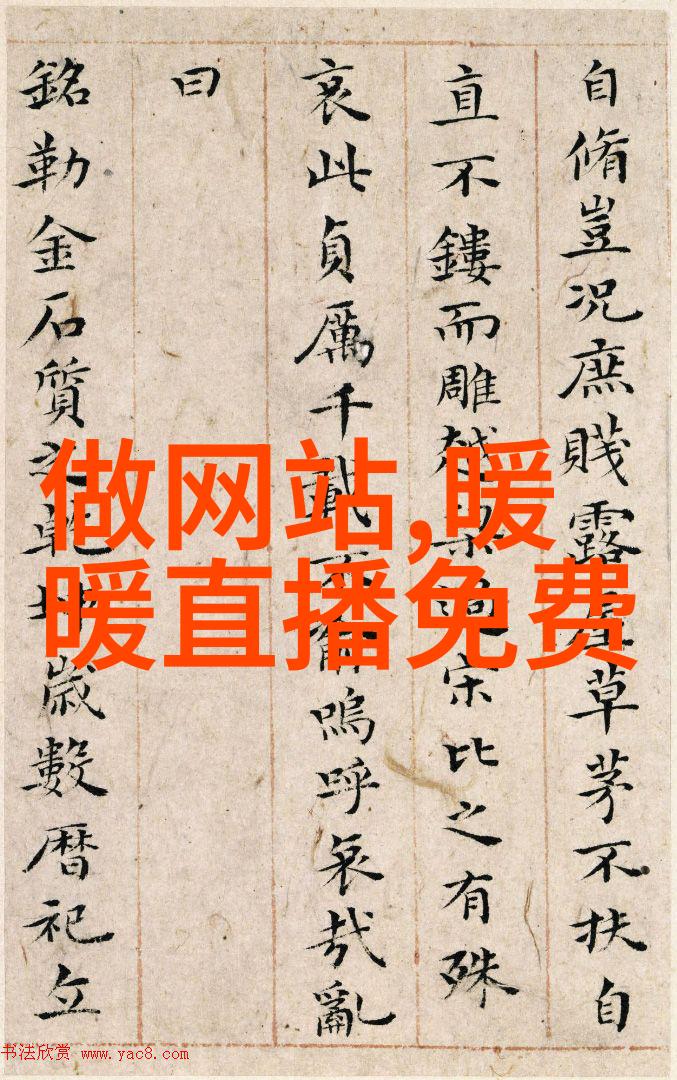 自脩豈況庶賤露草茅不扶自
直不鏤而雕越宋比之有殊
哀此貞厲千載不嗚呼哀哉亂
曰
銘勒金石質之乾坤歲數曆祀立
做网站,暖
暖直播免费
书法欣赏 www.yac8.com